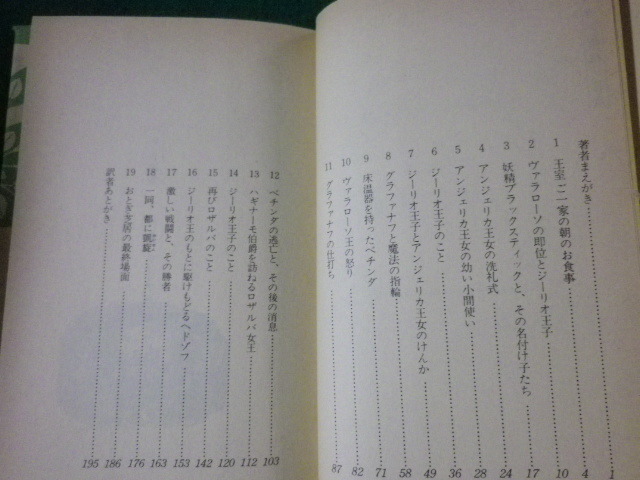 著者まえがき……1
1 王室ご一家の朝のお食事……4
2 ヴァラローソの即位とジーリオ王子……10
3 妖精ブラックスティックと、その名付け子たち……17
4 アンジェリカ王女の洗礼式……24
5 アンジェリカ王女の幼い小間使い……28
6 ジーリオ王子のこと……36
7 ジーリオ王子とアンジェリカ王女のけんか……49
8 グラファナフと魔法の指輪……58
9 床温器を持ったベチンダ……71
10 ヴァラローソ王の怒り……82
11 グラファナフの仕打ち……87
12 ベチンダの逃亡と、その後の消息……103
13 ハギナーモ伯爵を訪れるロザルバ女王……112
14 ジーリオ王子のこと……120
15 再びロザルバのこと……142
16 ジーリオ王のもとに駆けもどるヘドゾフ……153
17 激しい戦闘と、その勝者……163
18 一同、都に凱旋……176
19 おとぎ芝居の最終場面……186
訳者あとがき……195